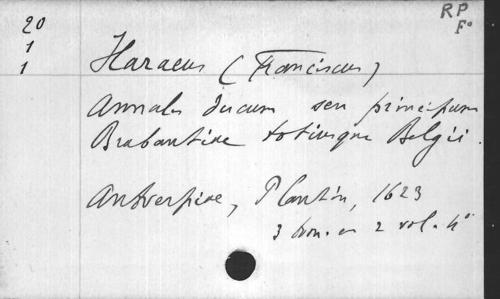 20
1
1
RP
F°
Haraeus (Franciscus)
Annales ducum seu principum
Brabantiae totiusque Belgii.
Antverpiae, Plantin, 1623
3 tom. en 2 vol. 4°